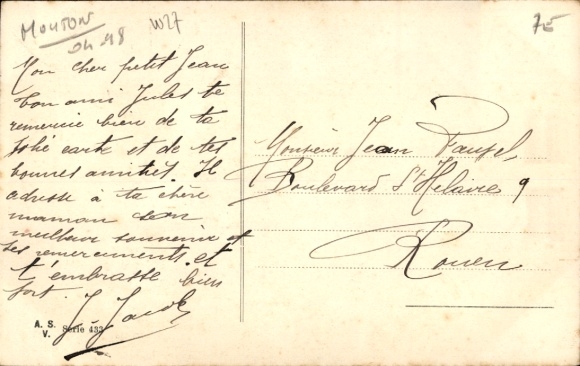 MOUTON W27 7E
04 218
Mon cher petit Jean
bon ami Jules te
remercie bien de ta
carte et de tes
bonnes amitiés. Il
adresse à ta chère
maman son
meilleur souvenir et
ses remerciements et
t'embrasse bien
fort. J. Jacob
A. S.
V. Série 433
Monsieur Jean
Boulevard St Hilaire 9
Rouen